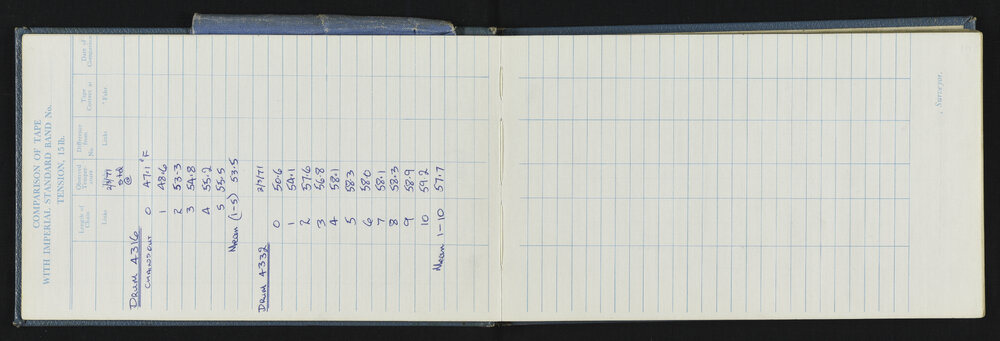 COMPARISON OF TAPE
WITH IMPERIAL STANDARD BAND No.
TENSION, 15 lb.
Length of Chain
Observed Temperature
Difference from No.
Tape Correct at
Date of Comparison
Links
Links
° Fahr.
2/7/71
Std
@
DRUM 4316
CHAINSOUT 0 47.1 °F
1 48.6
2 53.3
3 54.8
4 55.2
5 55.5
Mean (1-5) 53.5
DRUM 4332 2/7/71
0 50.6
1 54.1
2 57.6
3 56.8
4 58.1
5 58.3
6 58.0
7 58.1
8 58.3
9 58.9
10 59.2
Mean 1-10 57.7
Surveyor.